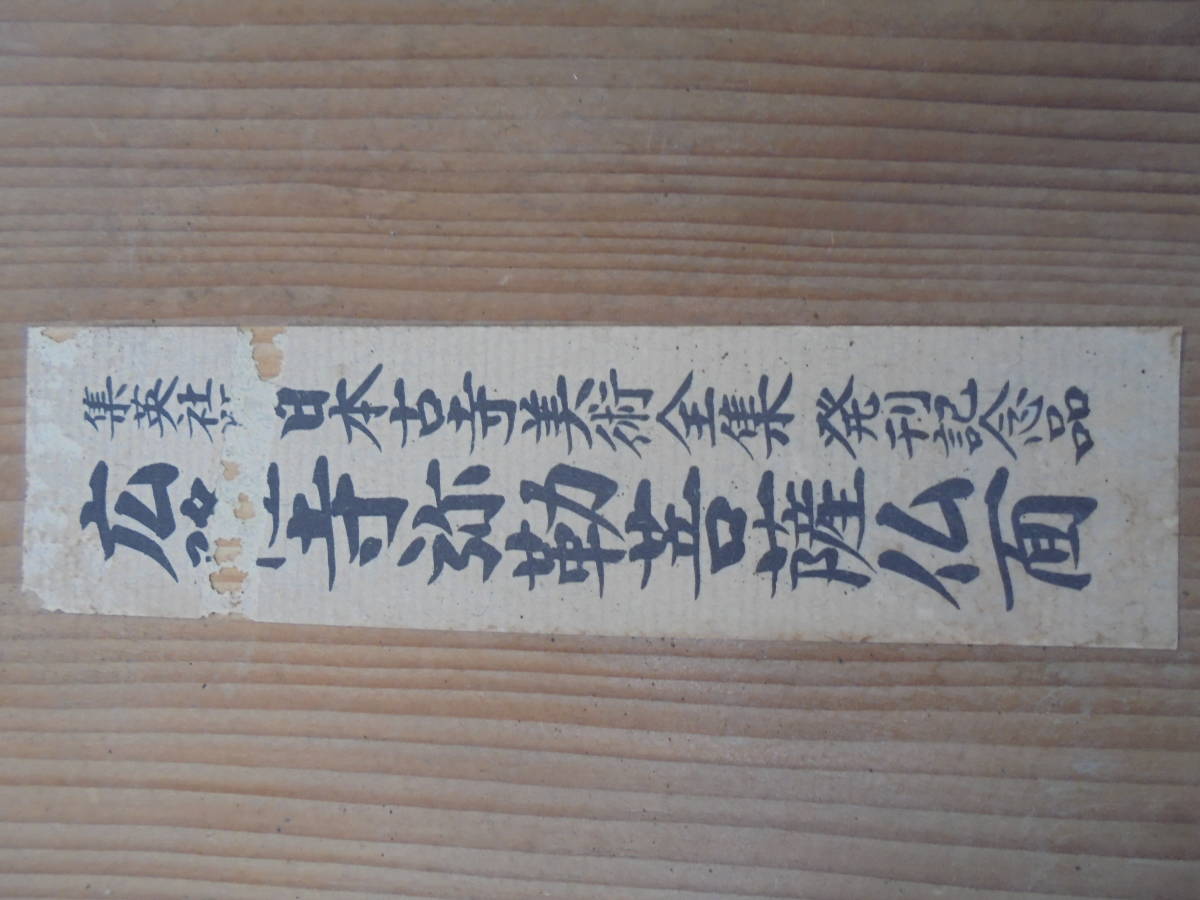 集英社 日本古寺美術全集 発刊記念品
広 寺弥勒菩薩仏面